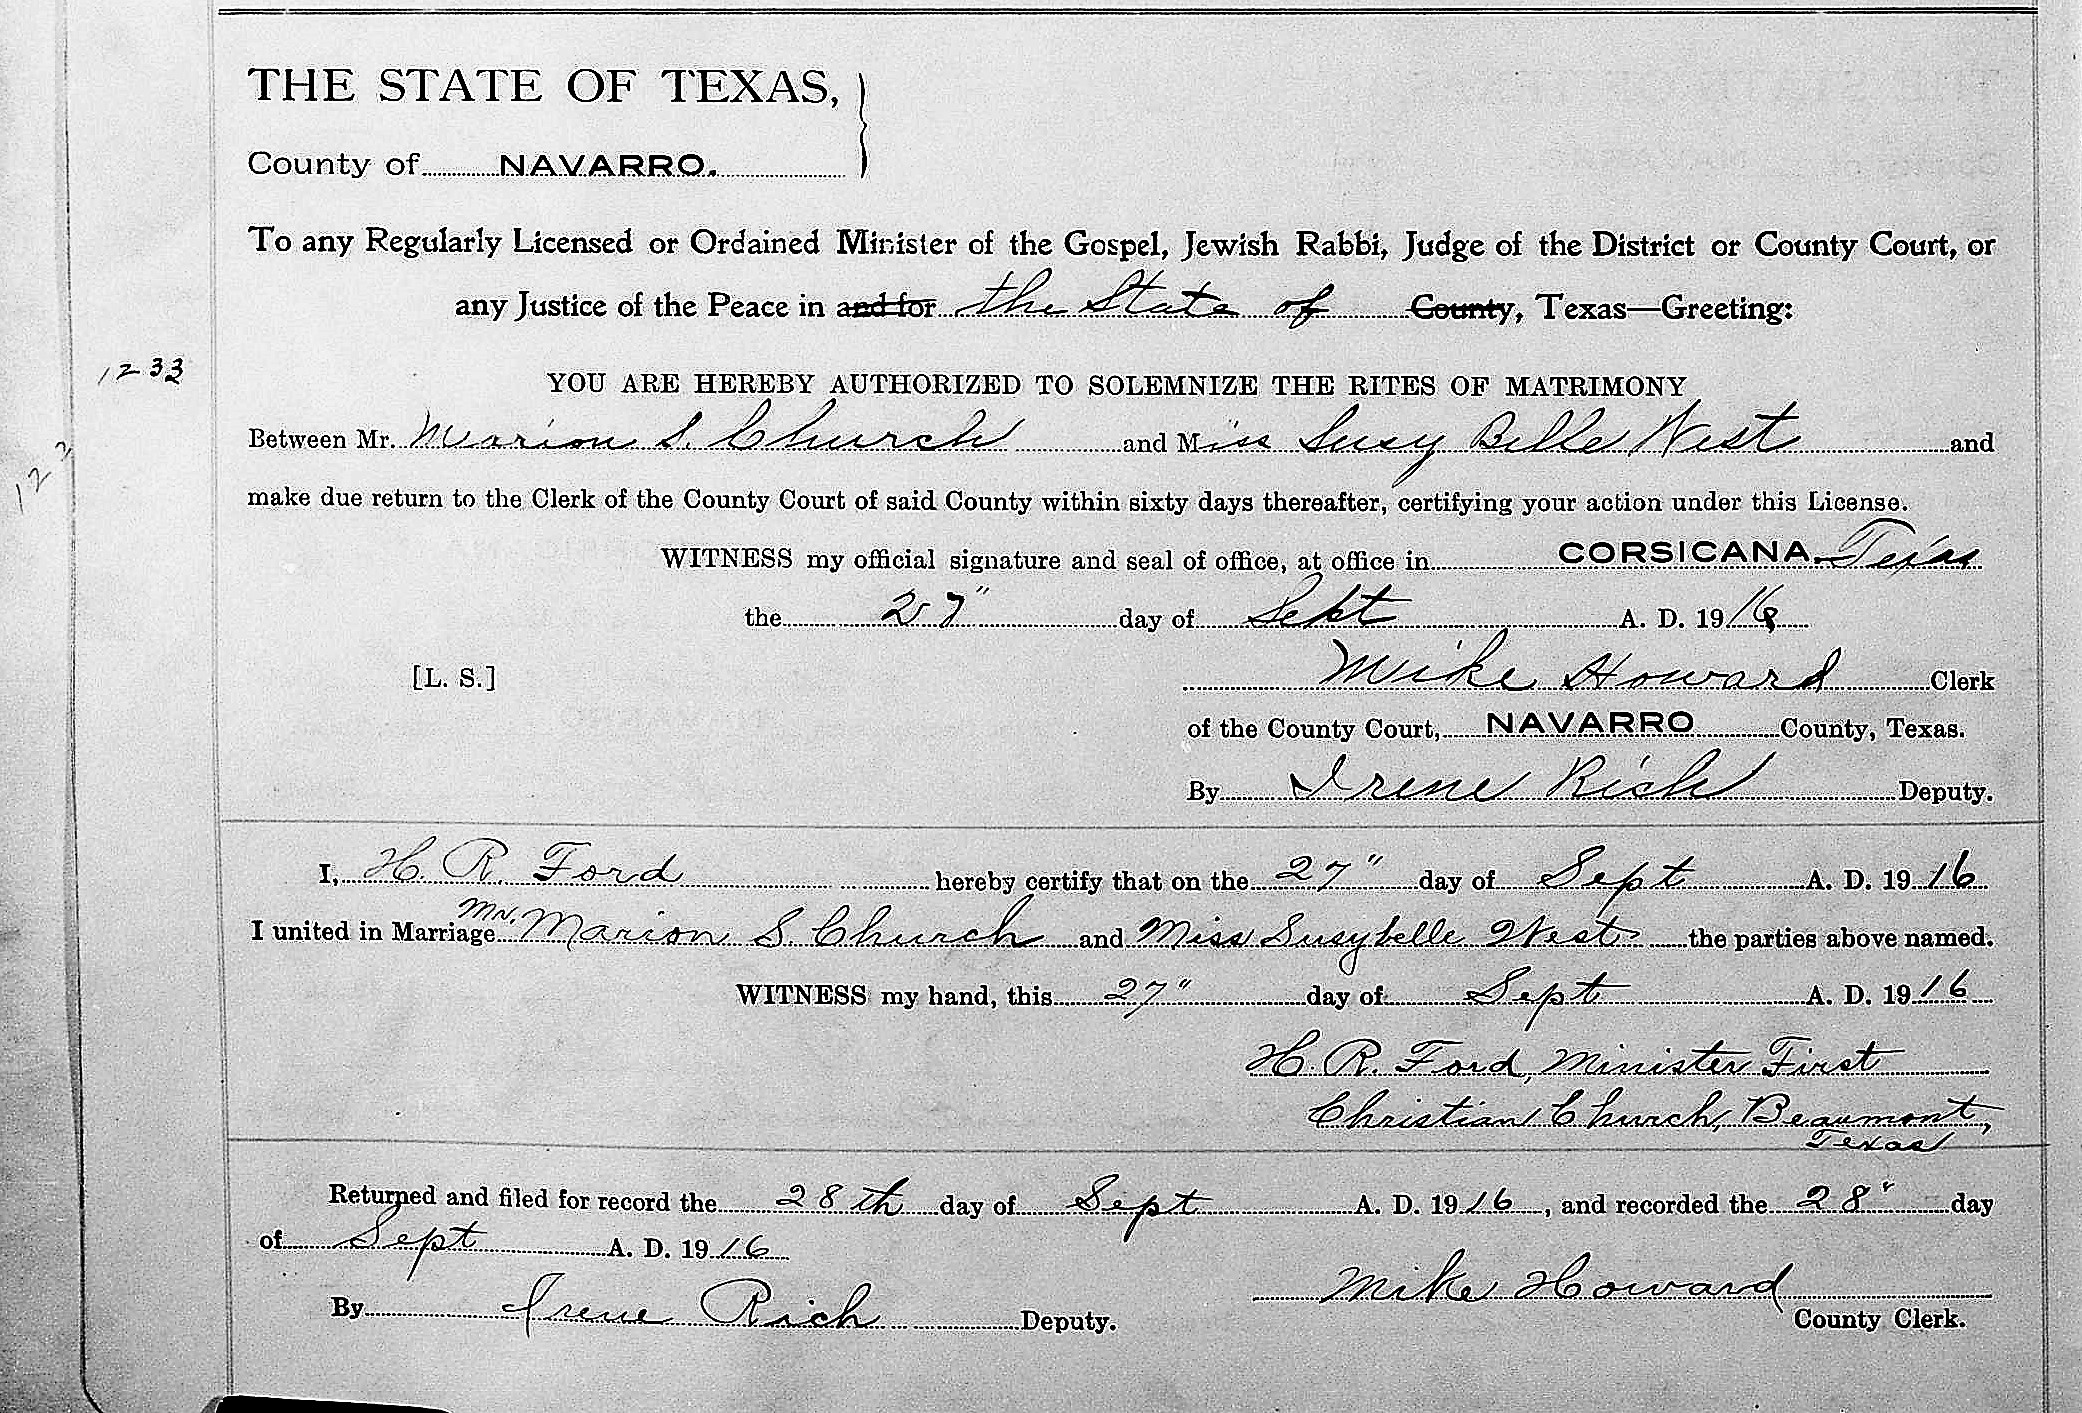 THE STATE OF TEXAS,
County of NAVARRO.
To any Regularly Licensed or Ordained Minister of the Gospel, Jewish Rabbi, Judge of the District or County Court, or
any Justice of the Peace in and for the State of County, Texas—Greeting:
1233
YOU ARE HEREBY AUTHORIZED TO SOLEMNIZE THE RITES OF MATRIMONY
Between Mr. Marion S. Church and Miss Susy Belle West and
122
make due return to the Clerk of the County Court of said County within sixty days thereafter, certifying your action under this License.
WITNESS my official signature and seal of office, at office in CORSICANA, Texas
the 27" day of Sept A. D. 1916
[L. S.] Mike Howard Clerk
of the County Court, NAVARRO County, Texas.
By Irene Rich Deputy.
I, H. R. Ford hereby certify that on the 27" day of Sept A. D. 1916
I united in Marriage Mr. Marion S. Church and Miss Susybelle West the parties above named.
WITNESS my hand, this 27" day of Sept A. D. 1916
H. R. Ford, Minister First
Christian Church, Beaumont,
Texas
Returned and filed for record the 28th day of Sept A. D. 1916, and recorded the 28" day
of Sept A. D. 1916
Mike Howard
By Irene Rich Deputy. County Clerk.